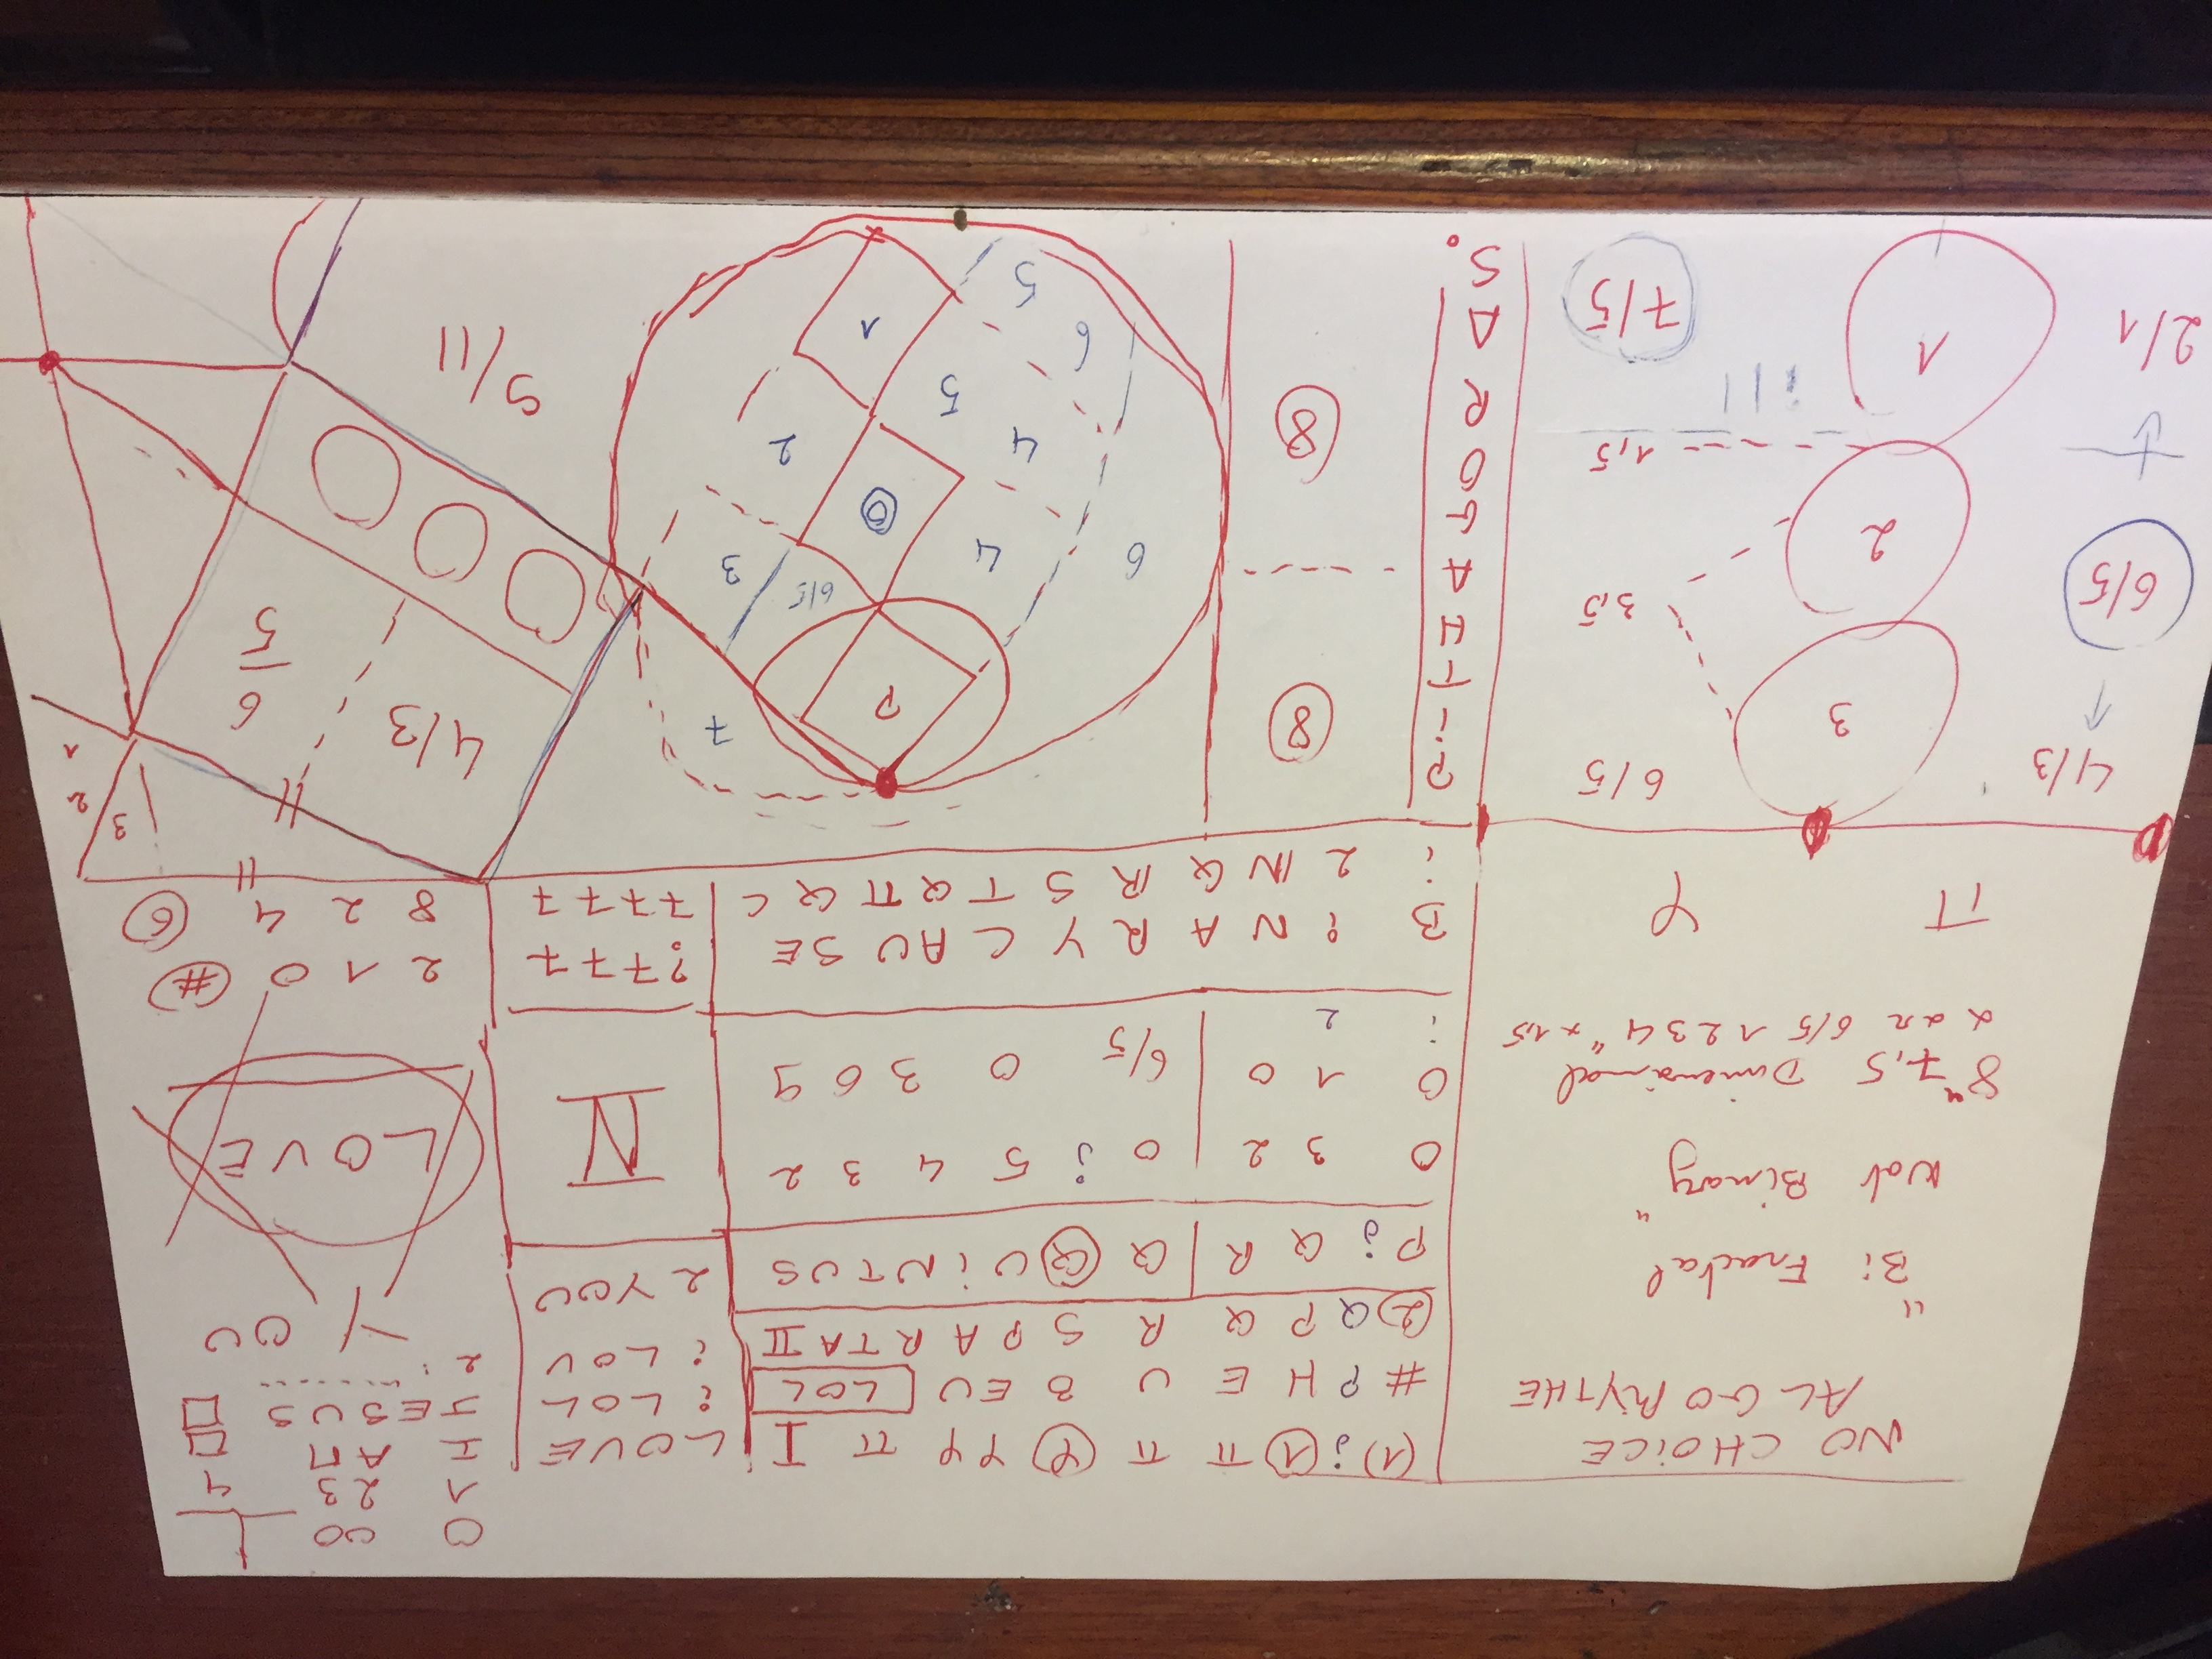 NO CHOICE
ALGORYTHE
"Bi Fractal
Not Binary"
8" 7,5 Dimensional
6/5 1 2 3 4 " x 1,5
π φ
(1) j 1 π π φ φ φ π I
# P H E U B E U LOL
(2) Q P Q R S P A R T A II
P j Q R Q Q U i N T U S
0 3 2 0 j 5 4 3 2
0 1 0 6/5 0 3 6 9
i 2
B i N A R Y C A U S E
i 2 I N Q R S T Q π Q C
LOVE
i LOL
i LOV
2 YOU
N
? 7 7 7
7 7 7 7
0 00
1 2 3 4
I AM
JESUS
2 :
YOU
LOVE
2 1 0 #
8 2 4 6
4/3
3
6/5
6/5
2
3,5
1,5
i
2/1
1
7/5
PiTHAGORAS.
8
8
P
7
6
4
6/5
3
0
4
2
5
6
1
5
4/3
6/5
3
2
1
9/11